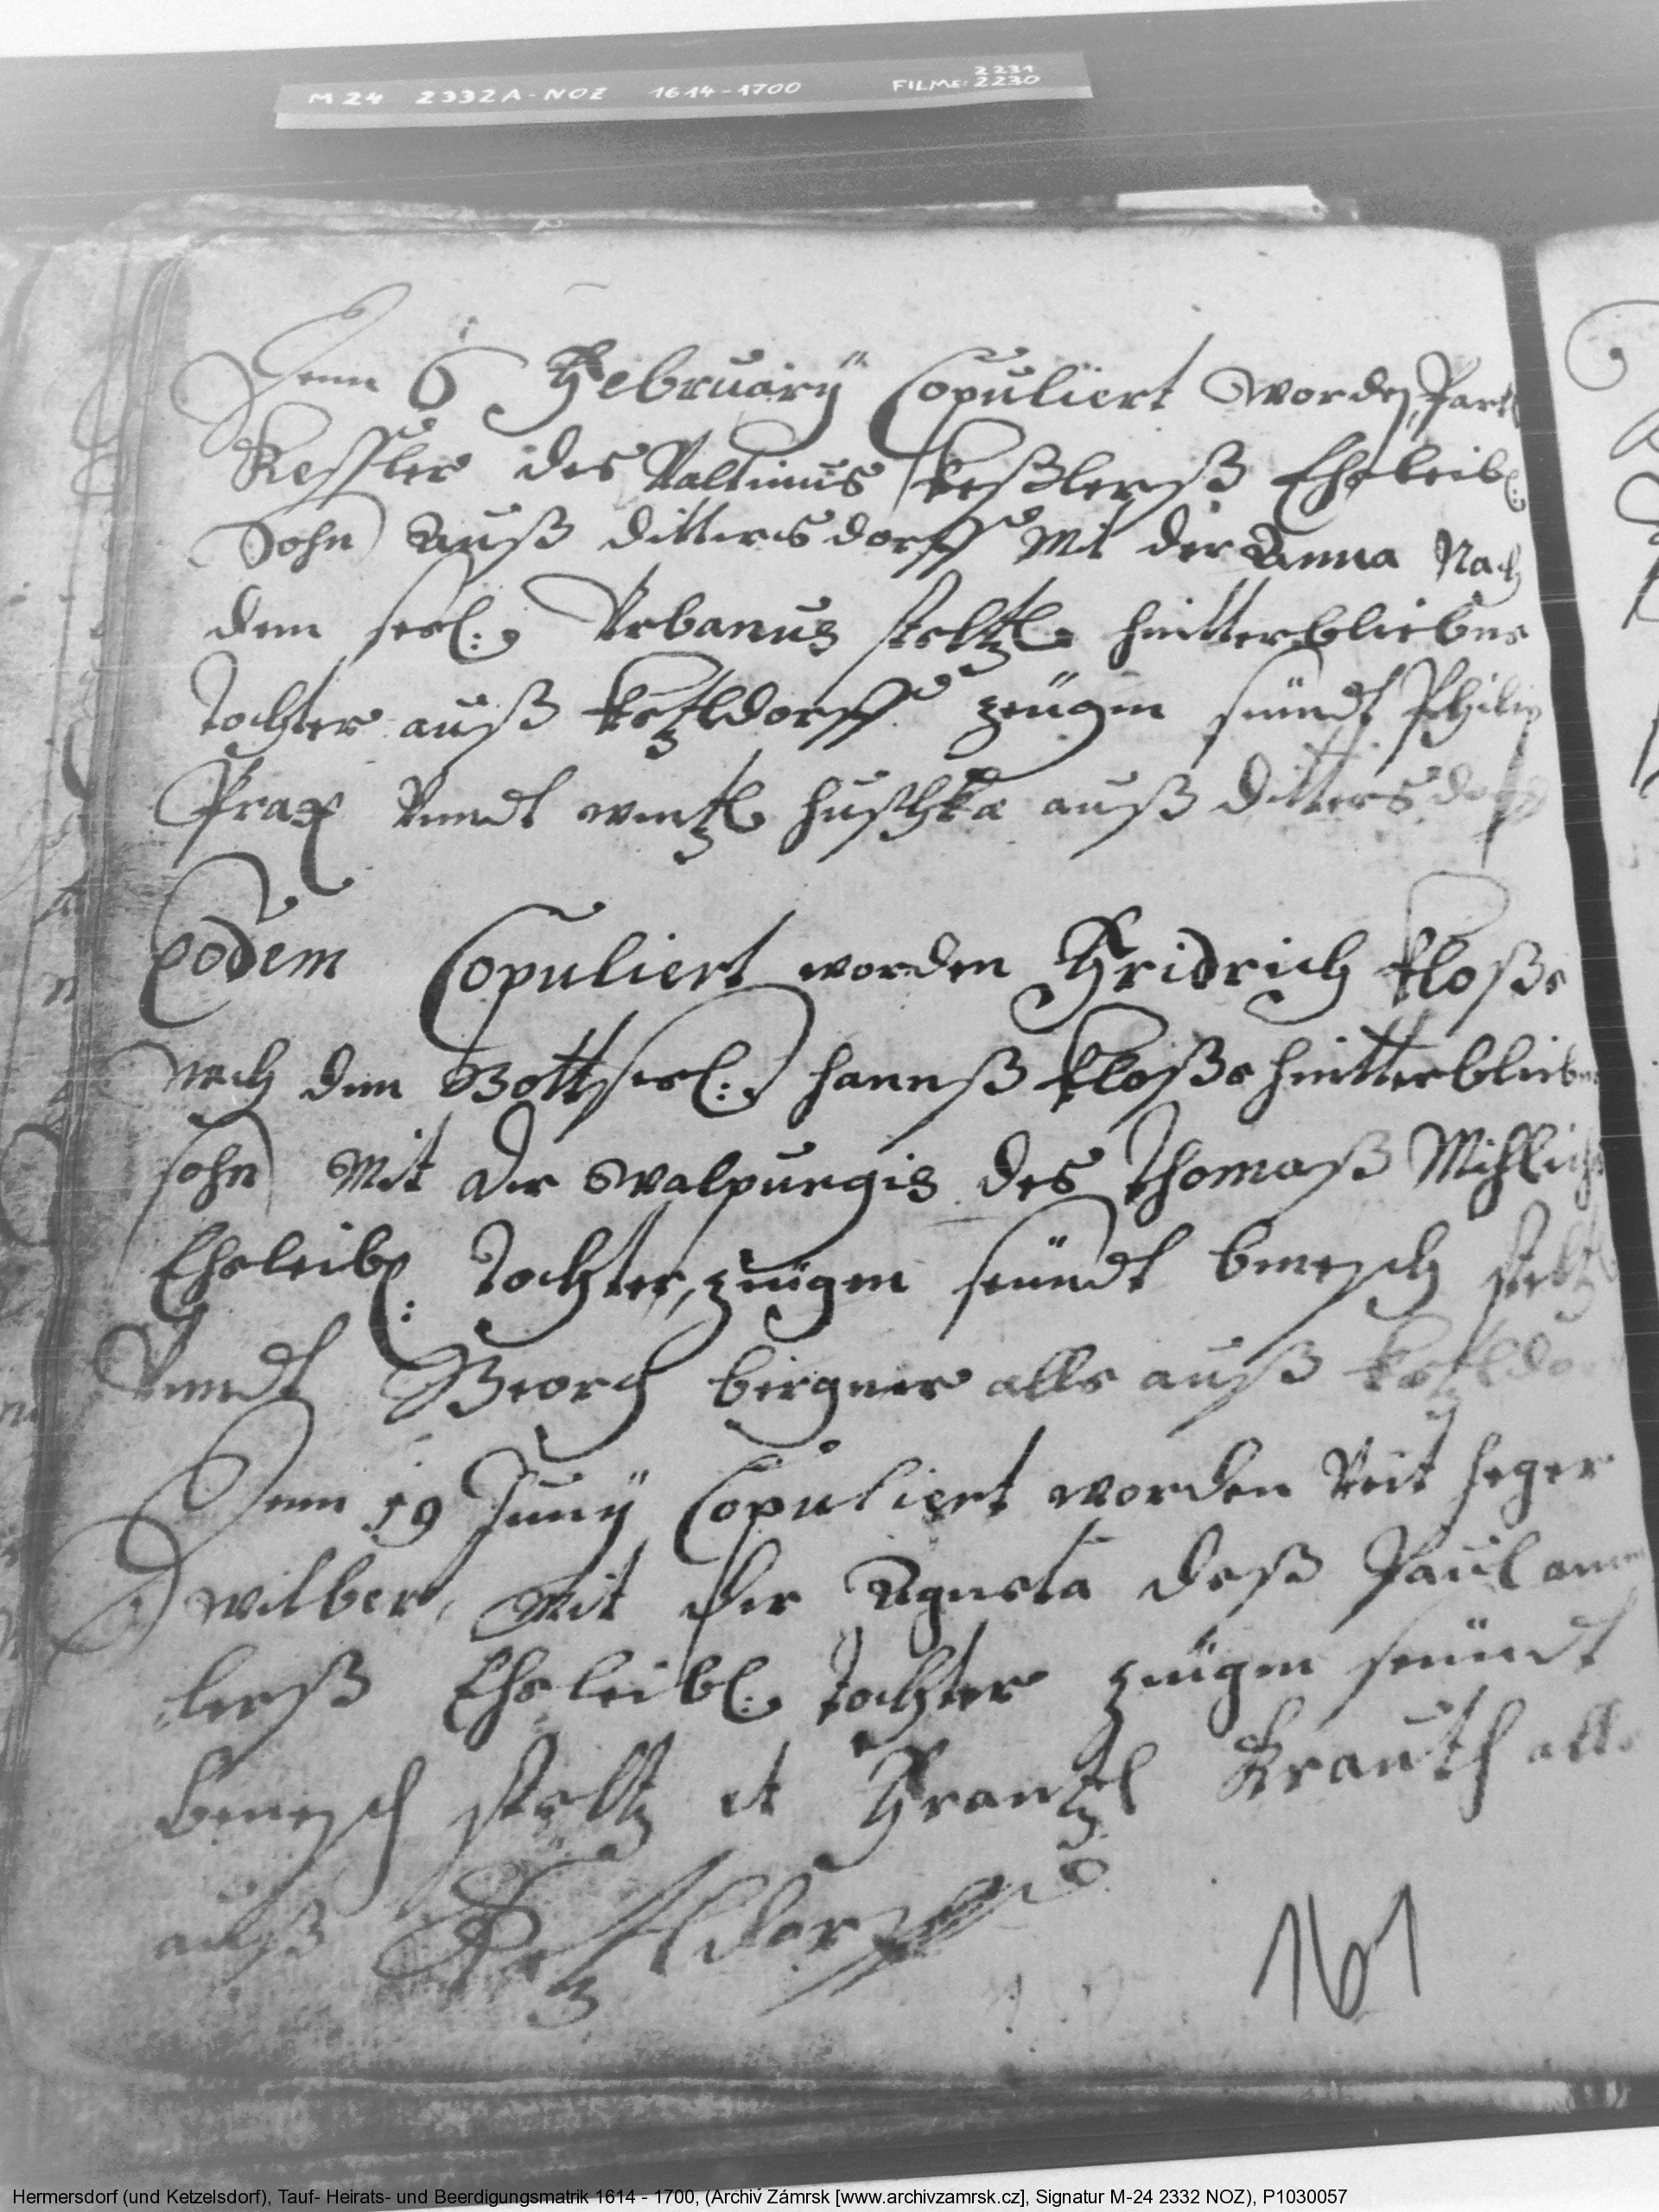 M 24 2332A-NOZ 1614-1700 FILME: 2231 2230
Denn 6 February Copuliert worden, Partl
Kessler des Valtinus Keßlerß Eheleibl:
Sohn Auß dittersdorff Mit der Anna Nach
dem seel: Urbanus steltzl hintterbliebne
tochter auß ketzldorff zeügen seündt Philip
Prax Vnndt wentzl huschka auß dittersdorff
Eodem Copuliert worden Fridrich kloße
nach dem Gottseel: hannß kloße hintterbliebner
sohn Mit der Walpurgis des Thomaß Mihlichs
Eheleibl: tochter, zeügen seündt benesch steltzl
Vnndt Georg birgner alle auß ketzldorff
Denn 19 Juny Copuliert worden Veit heger
wilber, Mit der Agneta deß Paul
lerß Eheleibl: tochter zeügen seündt
benesch steltz et Frantzl Krauth alle
auß Ketzldorff
161
Hermersdorf (und Ketzelsdorf), Tauf- Heirats- und Beerdigungsmatrik 1614 - 1700, (Archiv Zámrsk [www.archivzamrsk.cz], Signatur M-24 2332 NOZ), P1030057